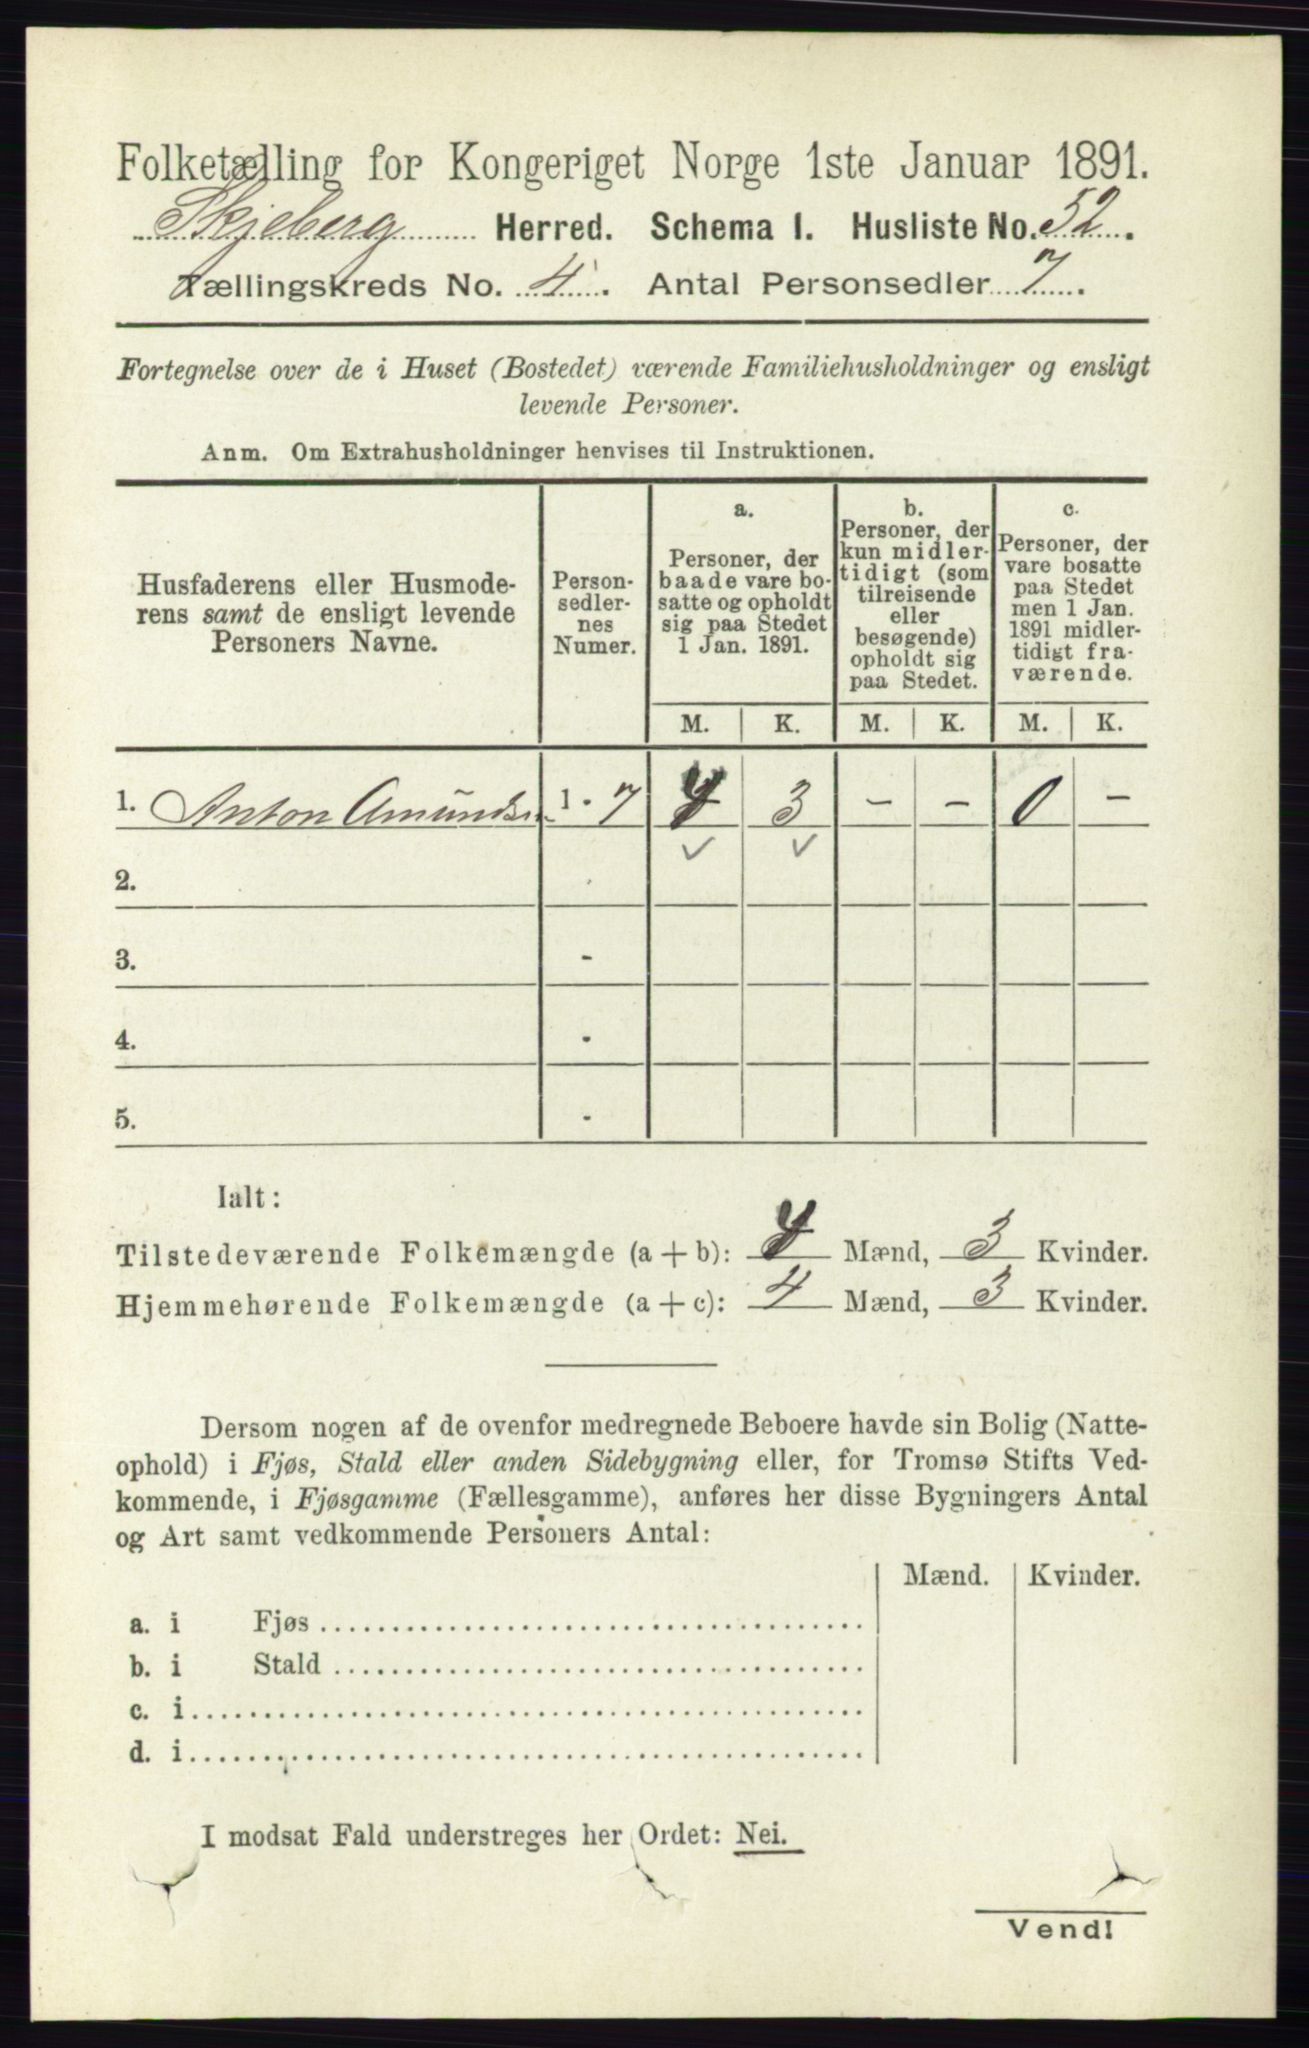 Folketælling for Kongeriget Norge 1ste Januar 1891.
Skjeberg Herred. Schema 1. Husliste No. 52.
Tællingskreds No. 4. Antal Personsedler 7.
Fortegnelse over de i Huset (Bostedet) værende Familiehusholdninger og ensligt
levende Personer.
Anm. Om Extrahusholdninger henvises til Instruktionen.
Husfaderens eller Husmode-
rens samt de ensligt levende
Personers Navne.
Person-
sedler-
nes
Numer.
a.
Personer, der
baade vare bo-
satte og opholdt
sig paa Stedet
1 Jan. 1891.
b.
Personer, der
kun midler-
tidigt (som
tilreisende
eller
besøgende)
opholdt sig
paa Stedet.
c.
Personer, der
vare bosatte
paa Stedet
men 1 Jan.
1891 midler-
tidigt fra-
værende.
M. K. M. K. M. K.
1. Anton Amundsen 1 - 7 4 3 - - 0 -
✓ ✓
2.
3. -
4. -
5. -
Ialt:
Tilstedeværende Folkemængde (a + b): 4 Mænd, 3 Kvinder.
Hjemmehørende Folkemængde (a + c): 4 Mænd, 3 Kvinder.
Dersom nogen af de ovenfor medregnede Beboere havde sin Bolig (Natte-
ophold) i Fjøs, Stald eller anden Sidebygning eller, for Tromsø Stifts Ved-
kommende, i Fjøsgamme (Fællesgamme), anføres her disse Bygningers Antal
og Art samt vedkommende Personers Antal:
Mænd. Kvinder.
a. i Fjøs
b. i Stald
c. i
d. i
I modsat Fald understreges her Ordet: Nei.
Vend!